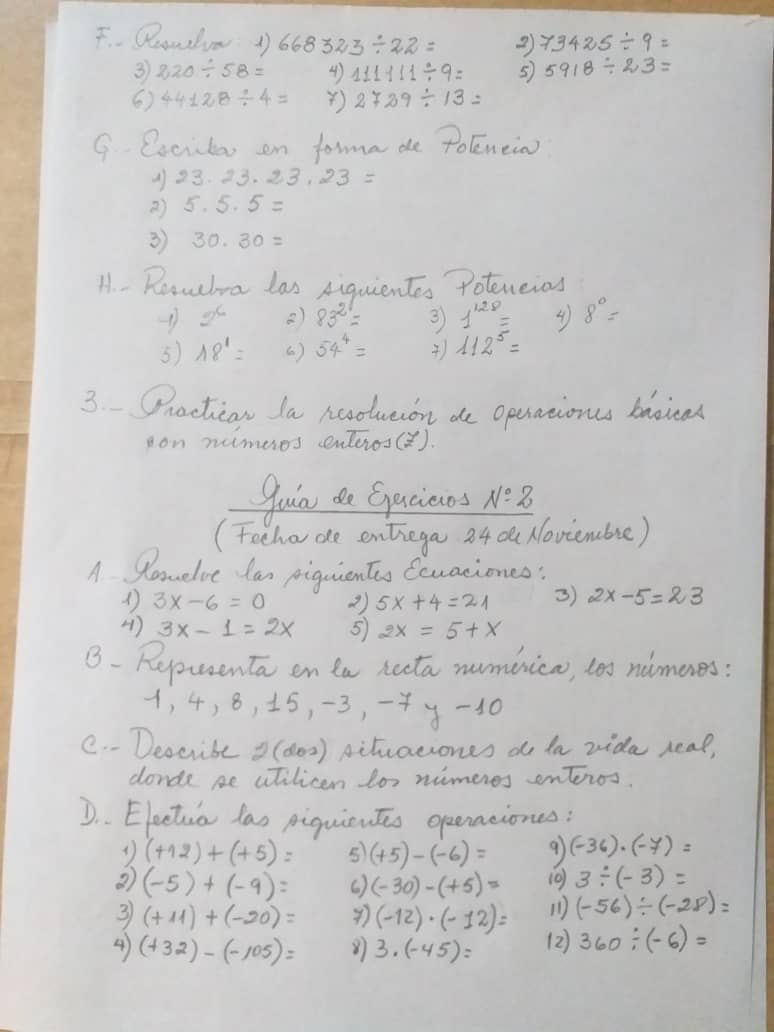 F.- Resuelva: 1) 668323÷22= 2) 73425÷9=
3) 220÷58= 4) 111111÷9= 5) 5918÷23=
6) 44128÷4= 7) 2729÷13=
G.- Escriba en forma de Potencia:
1) 23.23.23.23=
2) 5.5.5=
3) 30.30=
H.- Resuelva las siguientes Potencias
1) 2⁶ 2) 83²= 3) 1¹²⁸= 4) 8⁰=
5) 18¹= 6) 54⁴= 7) 112⁵=
3.- Practicar la resolución de operaciones básicas
con números enteros (Z).
Guía de Ejercicios Nº 2
(Fecha de entrega 24 de Noviembre)
A.- Resuelve las siguientes Ecuaciones:
1) 3x-6=0 2) 5x+4=21 3) 2x-5=23
4) 3x-1=2x 5) 2x=5+x
B- Representa en la recta numérica, los números:
1, 4, 8, 15, -3, -7 y -10
C.- Describe 2(dos) situaciones de la vida real,
donde se utilicen los números enteros.
D.- Efectúa las siguientes operaciones:
1) (+12)+(+5)= 5) (+5)-(-6)= 9) (-36).(-7)=
2) (-5)+(-9)= 6) (-30)-(+5)= 10) 3÷(-3)=
3) (+11)+(-20)= 7) (-12).(-12)= 11) (-56)÷(-28)=
4) (+32)-(-105)= 8) 3.(-45)= 12) 360÷(-6)=